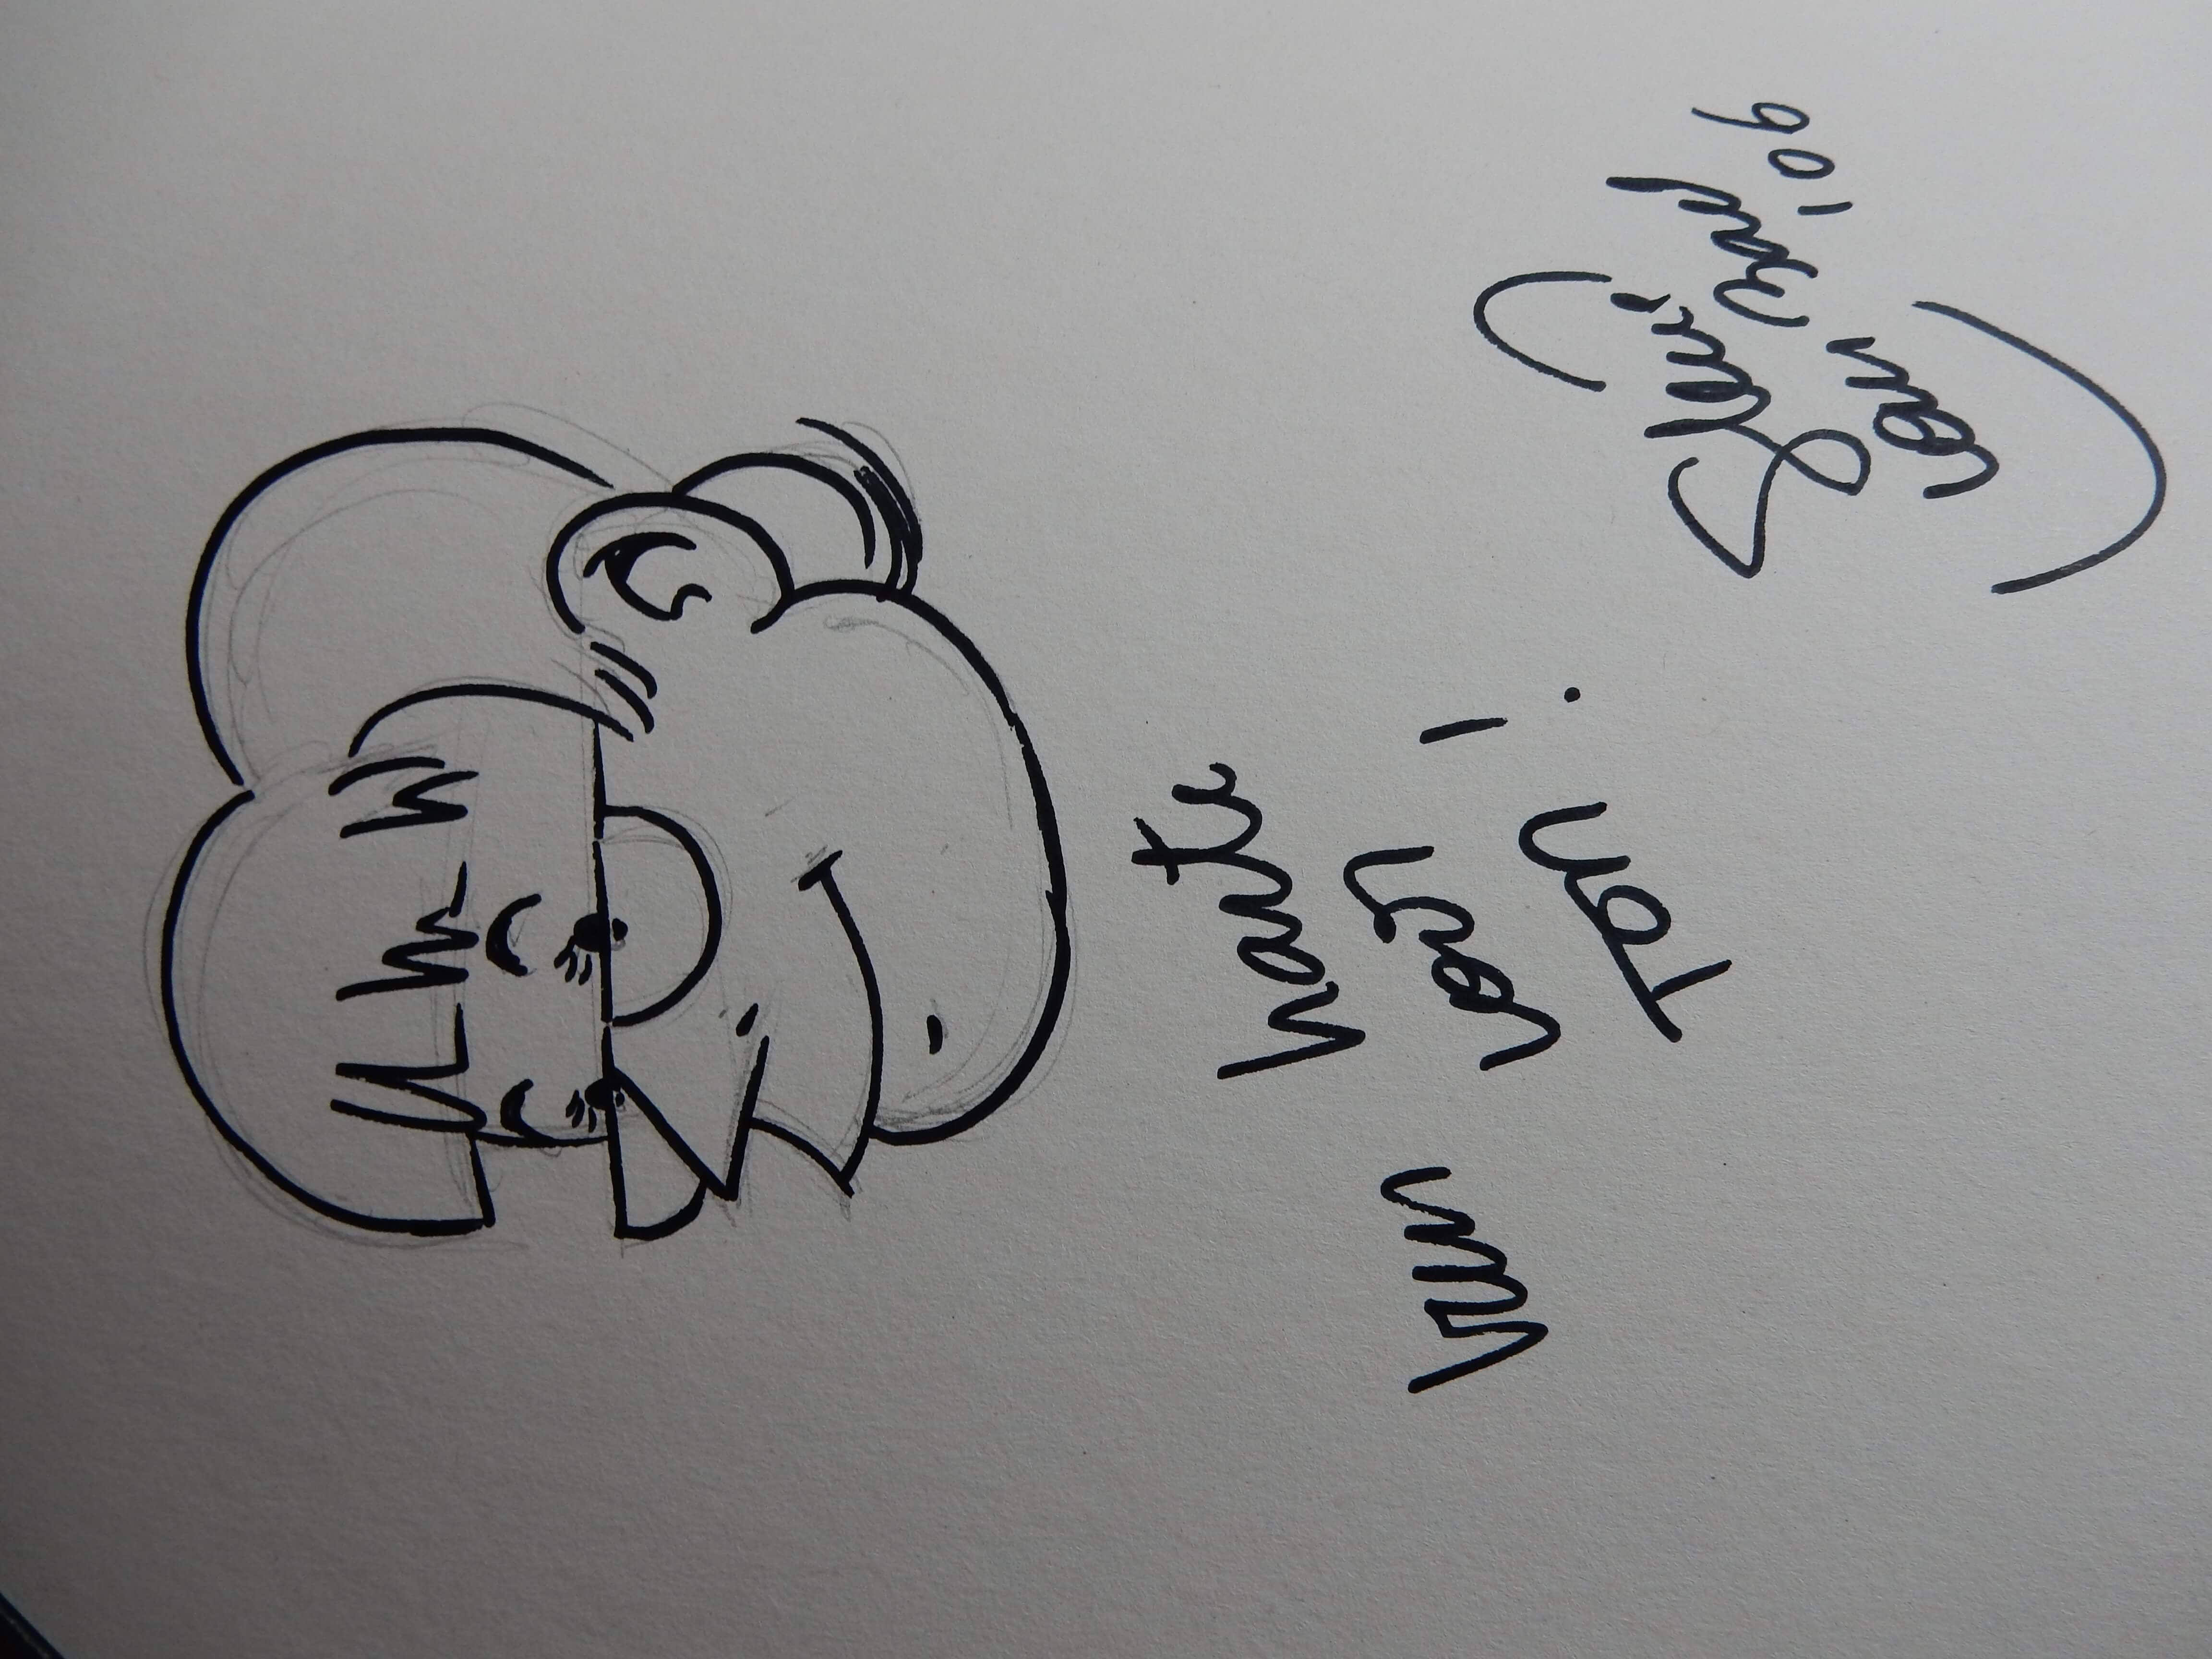 van harte
voor
Ton!
Steve
van Bael
'06